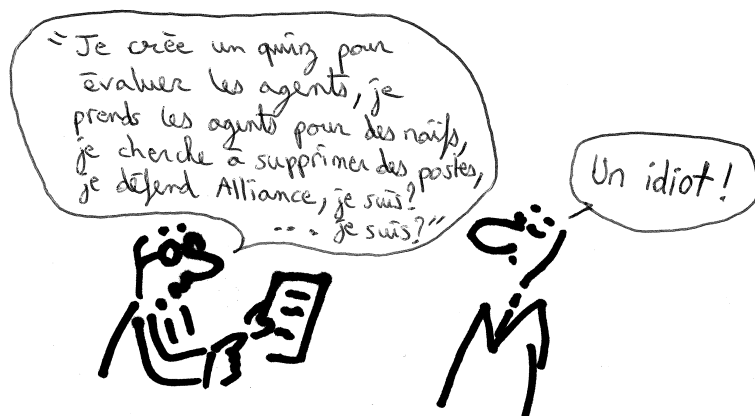 "Je crée un quiz pour
évaluer les agents, je
prends les agents pour des naïfs,
je cherche à supprimer des postes,
je défend Alliance, je suis?
... je suis?"
Un idiot!